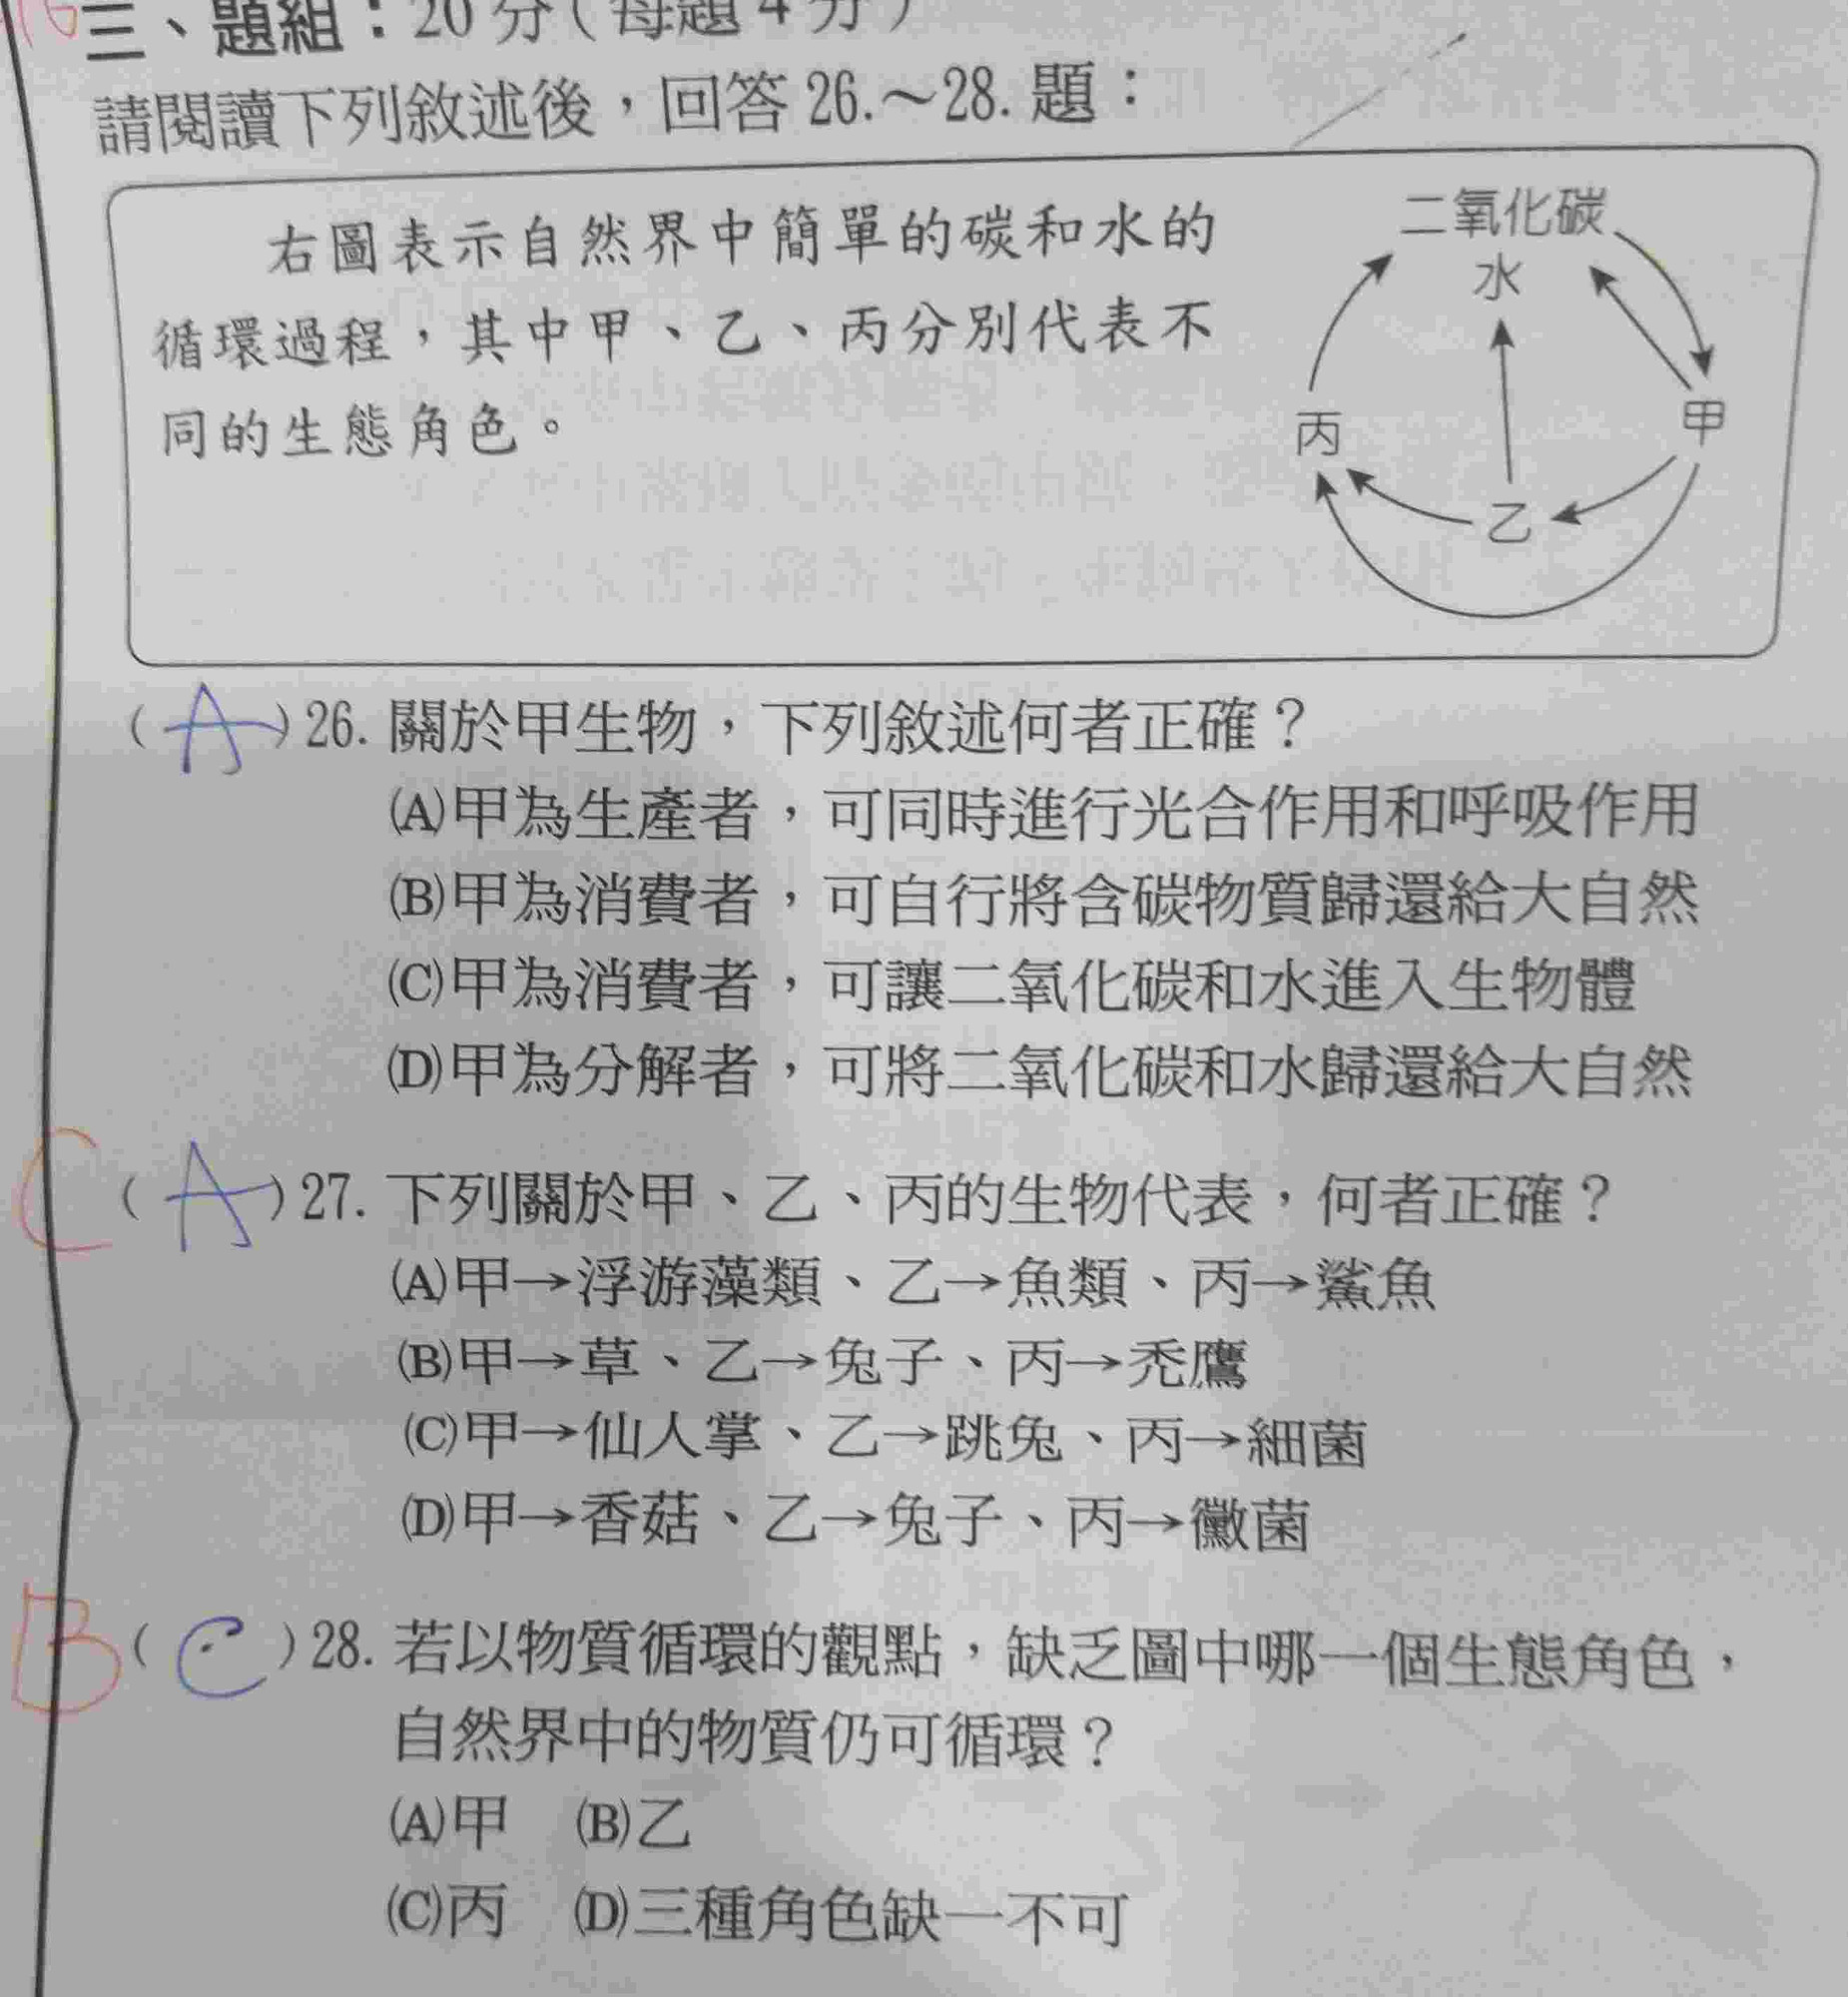 三、題組：20 分（每題 4 分）
請閱讀下列敘述後，回答 26.～28. 題：
右圖表示自然界中簡單的碳和水的
循環過程，其中甲、乙、丙分別代表不
同的生態角色。
二氧化碳
水
丙
甲
乙
（A）26. 關於甲生物，下列敘述何者正確？
(A)甲為生產者，可同時進行光合作用和呼吸作用
(B)甲為消費者，可自行將含碳物質歸還給大自然
(C)甲為消費者，可讓二氧化碳和水進入生物體
(D)甲為分解者，可將二氧化碳和水歸還給大自然
C（A）27. 下列關於甲、乙、丙的生物代表，何者正確？
(A)甲→浮游藻類、乙→魚類、丙→鯊魚
(B)甲→草、乙→兔子、丙→禿鷹
(C)甲→仙人掌、乙→跳兔、丙→細菌
(D)甲→香菇、乙→兔子、丙→黴菌
B（C）28. 若以物質循環的觀點，缺乏圖中哪一個生態角色，
自然界中的物質仍可循環？
(A)甲 (B)乙
(C)丙 (D)三種角色缺一不可